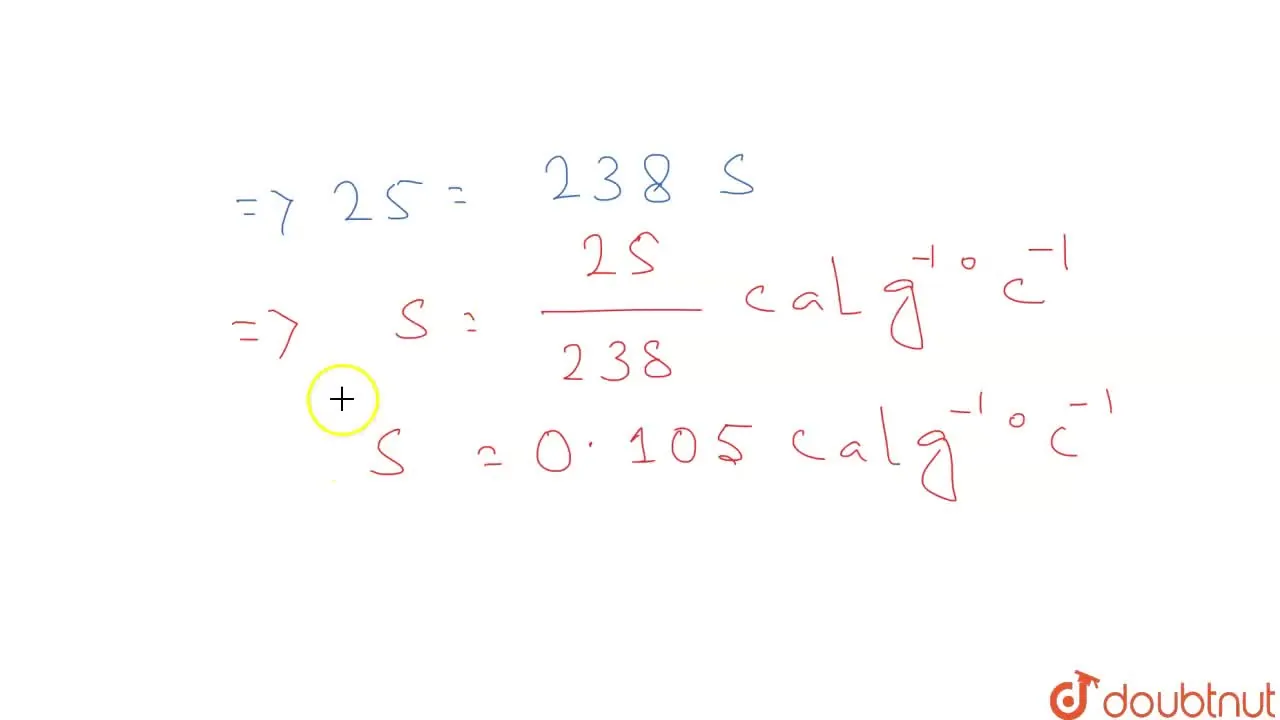 => 25 = 238 S
=> S = 25/238 cal g⁻¹ °c⁻¹
S = 0.105 cal g⁻¹ °c⁻¹
doubtnut